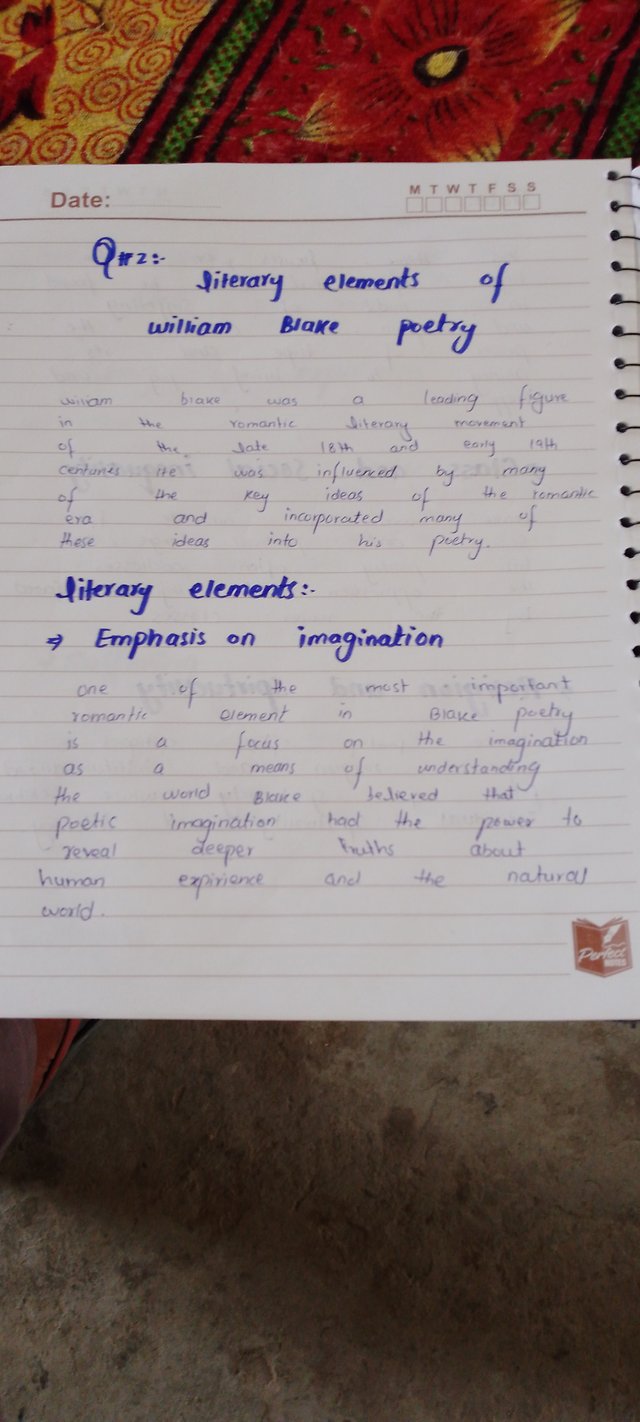 Date:
M T W T F S S
Q#2:-
literary elements of
william Blake poetry
william blake was a leading figure
in the romantic literary movement
of the late 18th and early 19th
centuries He was influenced by many
of the key ideas of the romantic
era and incorporated many of
these ideas into his poetry.
literary elements:-
⇒ Emphasis on imagination
one of the most important
romantic element in Blake poetry
is a focus on the imagination
as a means of understanding
the world Blake believed that
poetic imagination had the power to
reveal deeper truths about
human expirience and the natural
world.
Perfect
NOTES